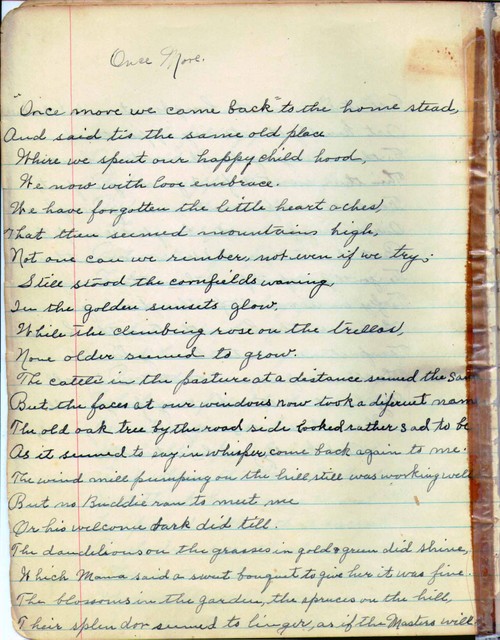 Once More.
"Once more we came back" to the home stead,
And said tis the same old place
Whire we spent our happy child hood,
We now with love embrace.
We have forgotten the little heart aches,
That then seemed mountains high,
Not one can we rember, not even if we try;
Still stood the cornfields waving,
In the golden sunsets glow.
While the climbing rose on the trellas,
None older seemed to grow.
The cattle in the pasture at a distance seemed the
But the faces at our windows now took a diferent
The old oak tree by the road side looked rather sad to be
As it seemed to say in whisper, come back again to me.
The wind mill pumping on the hill still was working well
But no Buddie ran to meet me
Or his welcome bark did tell.
The dandelions on the grasses in gold & green did shine,
Which Mama said a sweet bouquet to give her it was fine.
The blossoms in the garden, the spruces on the hill,
Their splendor seemed to linger, as if the Masters will